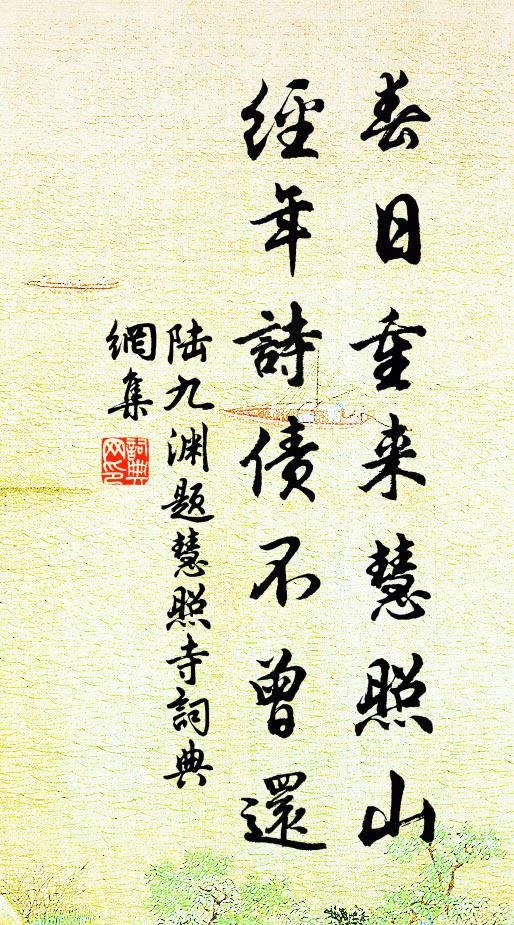 春日重来慧照山
經年詩債不曾還
陆九渊题慧照寺詞典
網集
詞典
网印